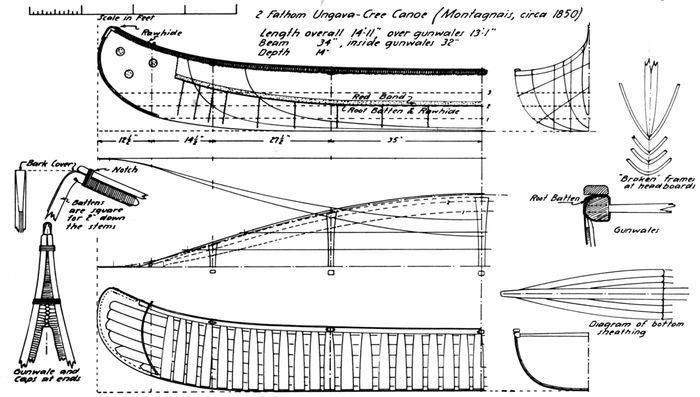 Scale in Feet
2 Fathom Ungava-Cree Canoe (Montagnais, circa 1850)
Rawhide
Length overall 14'11", over gunwales 13'1"
Beam 34", inside gunwales 32"
Depth 14"
3
Red Band
2
Root Batten & Rawhide
1
14½"
27½"
35"
Bark Cover
Notch
Battens
are square
for 2" down
the stems
"Broken" frames
at headboards
Root Batten
Gunwales
Diagram of bottom
sheathing
Gunwale and
Caps at ends